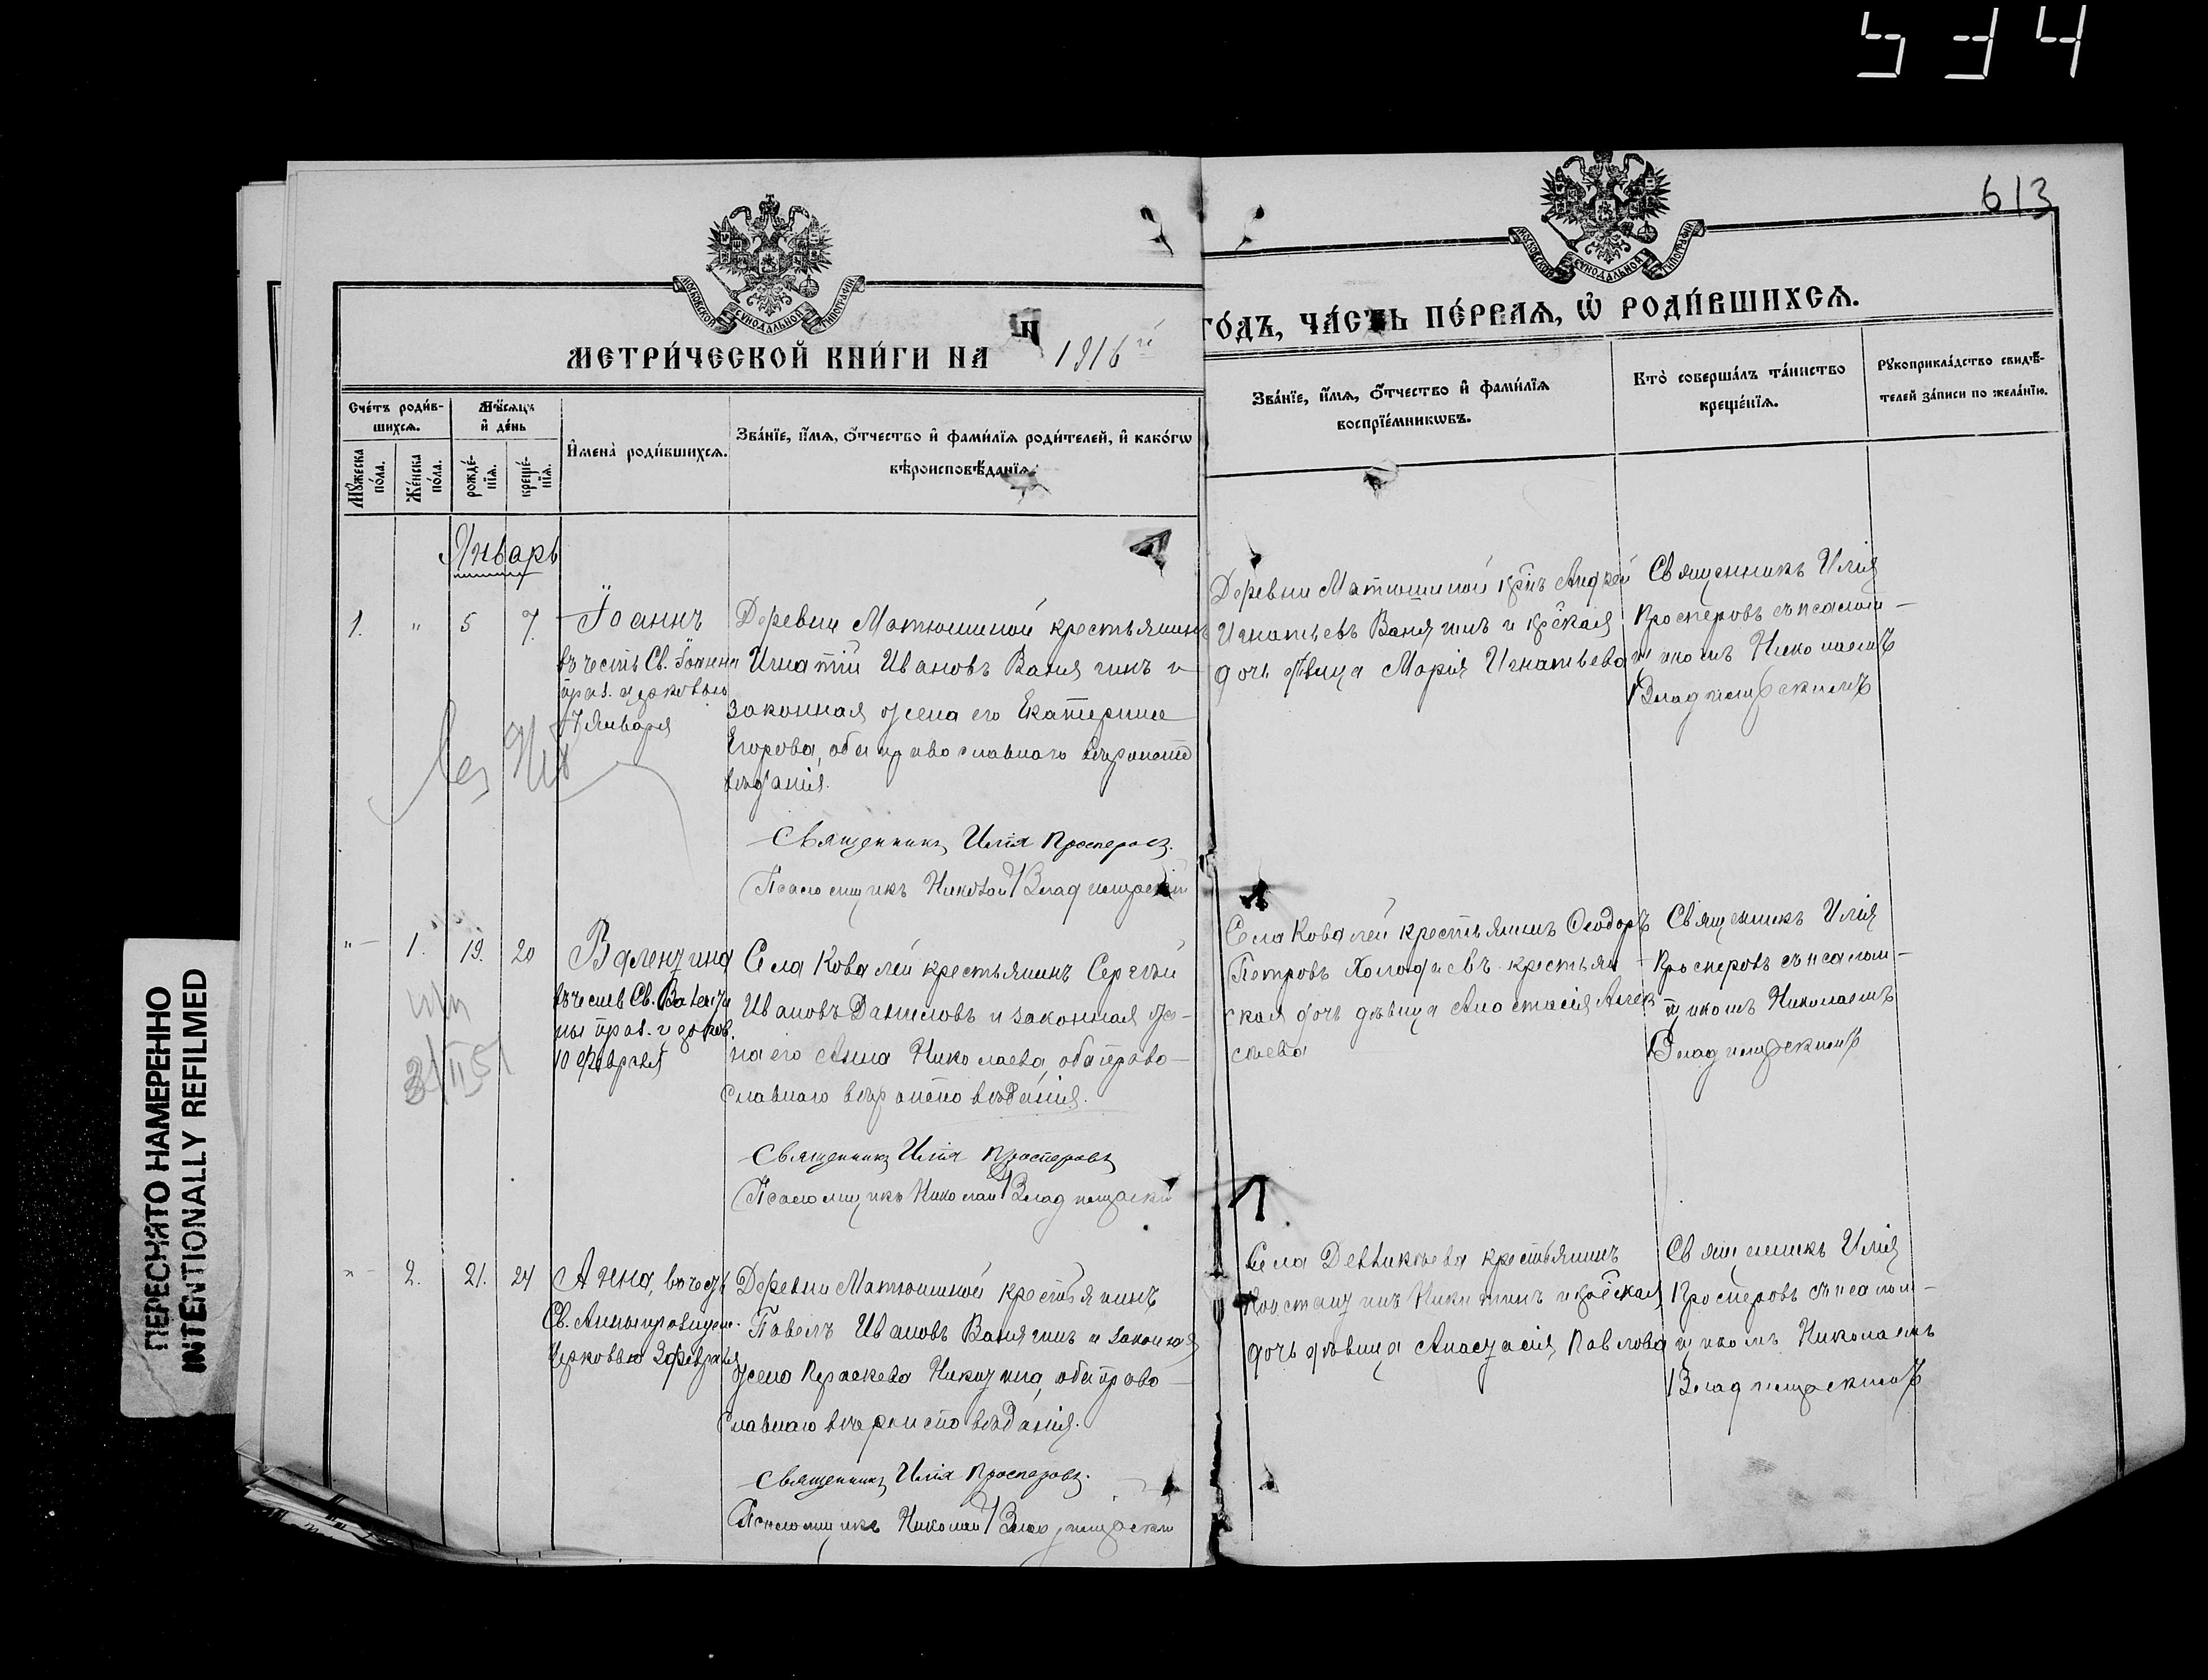 534
613
МОСКОВСКОЙ СѴНОДАЛЬНОЙ ТИПОГРАФІИ
МОСКОВСКОЙ СѴНОДАЛЬНОЙ ТИПОГРАФІИ
МЕТРИ́ЧЕСКОЙ КНИ́ГИ НА 1916й
ГО́ДЪ, ЧА́СТЬ ПЕ́РВАѦ, Ѡ҆ РОДИ́ВШИХСѦ.
Сче́тъ роди́в-
шихсѧ.
Мꙋ́жеска
по́ла.
Же́нска
по́ла.
Мѣ́сѧцъ
и҆ де́нь
рожде́-
нїѧ.
креще́-
нїѧ.
И҆мена̀ роди́вшихсѧ.
Зва́нїе, и҆́мѧ, ѻ҆́тчество и҆ фами́лїѧ роди́телей, и҆ како́гѡ
вѣроисповѣ́данїѧ.
Зва́нїе, и҆́мѧ, ѻ҆́тчество и҆ фами́лїѧ
воспрїе́мникѡвъ.
Кто̀ соверша́лъ та́инство
креще́нїѧ.
Рꙋкоприкла́дство свидѣ́-
телей за́писи по жела́нїю.
Январь
1. " 5 7.
Іоаннъ
въ честь Св. Іоанна
праз. церковью
7 Января
Деревни Матюшиной крестьянинъ
Игнатій Ивановъ Ванягинъ и
законная жена его Екатерина
Егорова, оба православнаго вѣроиспо
вѣданія.
Священникъ Илія Просперовъ.
Псаломщикъ Николай
Деревни Матюшиной кр̃нъ Андрей
Игнатьевъ Ванягинъ и кр̃ская
дочь дѣвица Марія Игнатьева
Священникъ Илія
Просперовъ съ псалом-
щикомъ Николаемъ
"- 1. 19. 20
Валентина
въ честь Св. Валенти
ны праз. церков.
10 Февраля
Села Ковалей крестьянинъ Сергѣй
Ивановъ Даниловъ и законная же-
на его Анна Николаева, оба право-
славнаго вѣроисповѣданія.
Священникъ Илія Просперовъ
Псаломщикъ Николай
Села Ковалей крестьянинъ Ѳеодоръ
Петровъ крестьян-
ская дочь дѣвица Анастасія Алек
сѣева
Священникъ Илія
Просперовъ съ псалом-
щикомъ Николаемъ
"- 2. 21. 24
Анна, въ честь
Св. Анны
Церковью 3 февраля
Деревни Матюшиной крестьянинъ
Павелъ Ивановъ Ванягинъ и законная
жена Параскева Никитина, оба право-
славнаго вѣроисповѣданія.
Священникъ Илія Просперовъ.
Псаломщикъ Николай
Села крестьянинъ
Константинъ Никитинъ и кр̃ская
дочь дѣвица Анастасія Павлова
Священникъ Илія
Просперовъ съ псалом-
щикомъ Николаемъ
ПЕРЕСНЯТО НАМЕРЕННО
INTENTIONALLY REFILMED